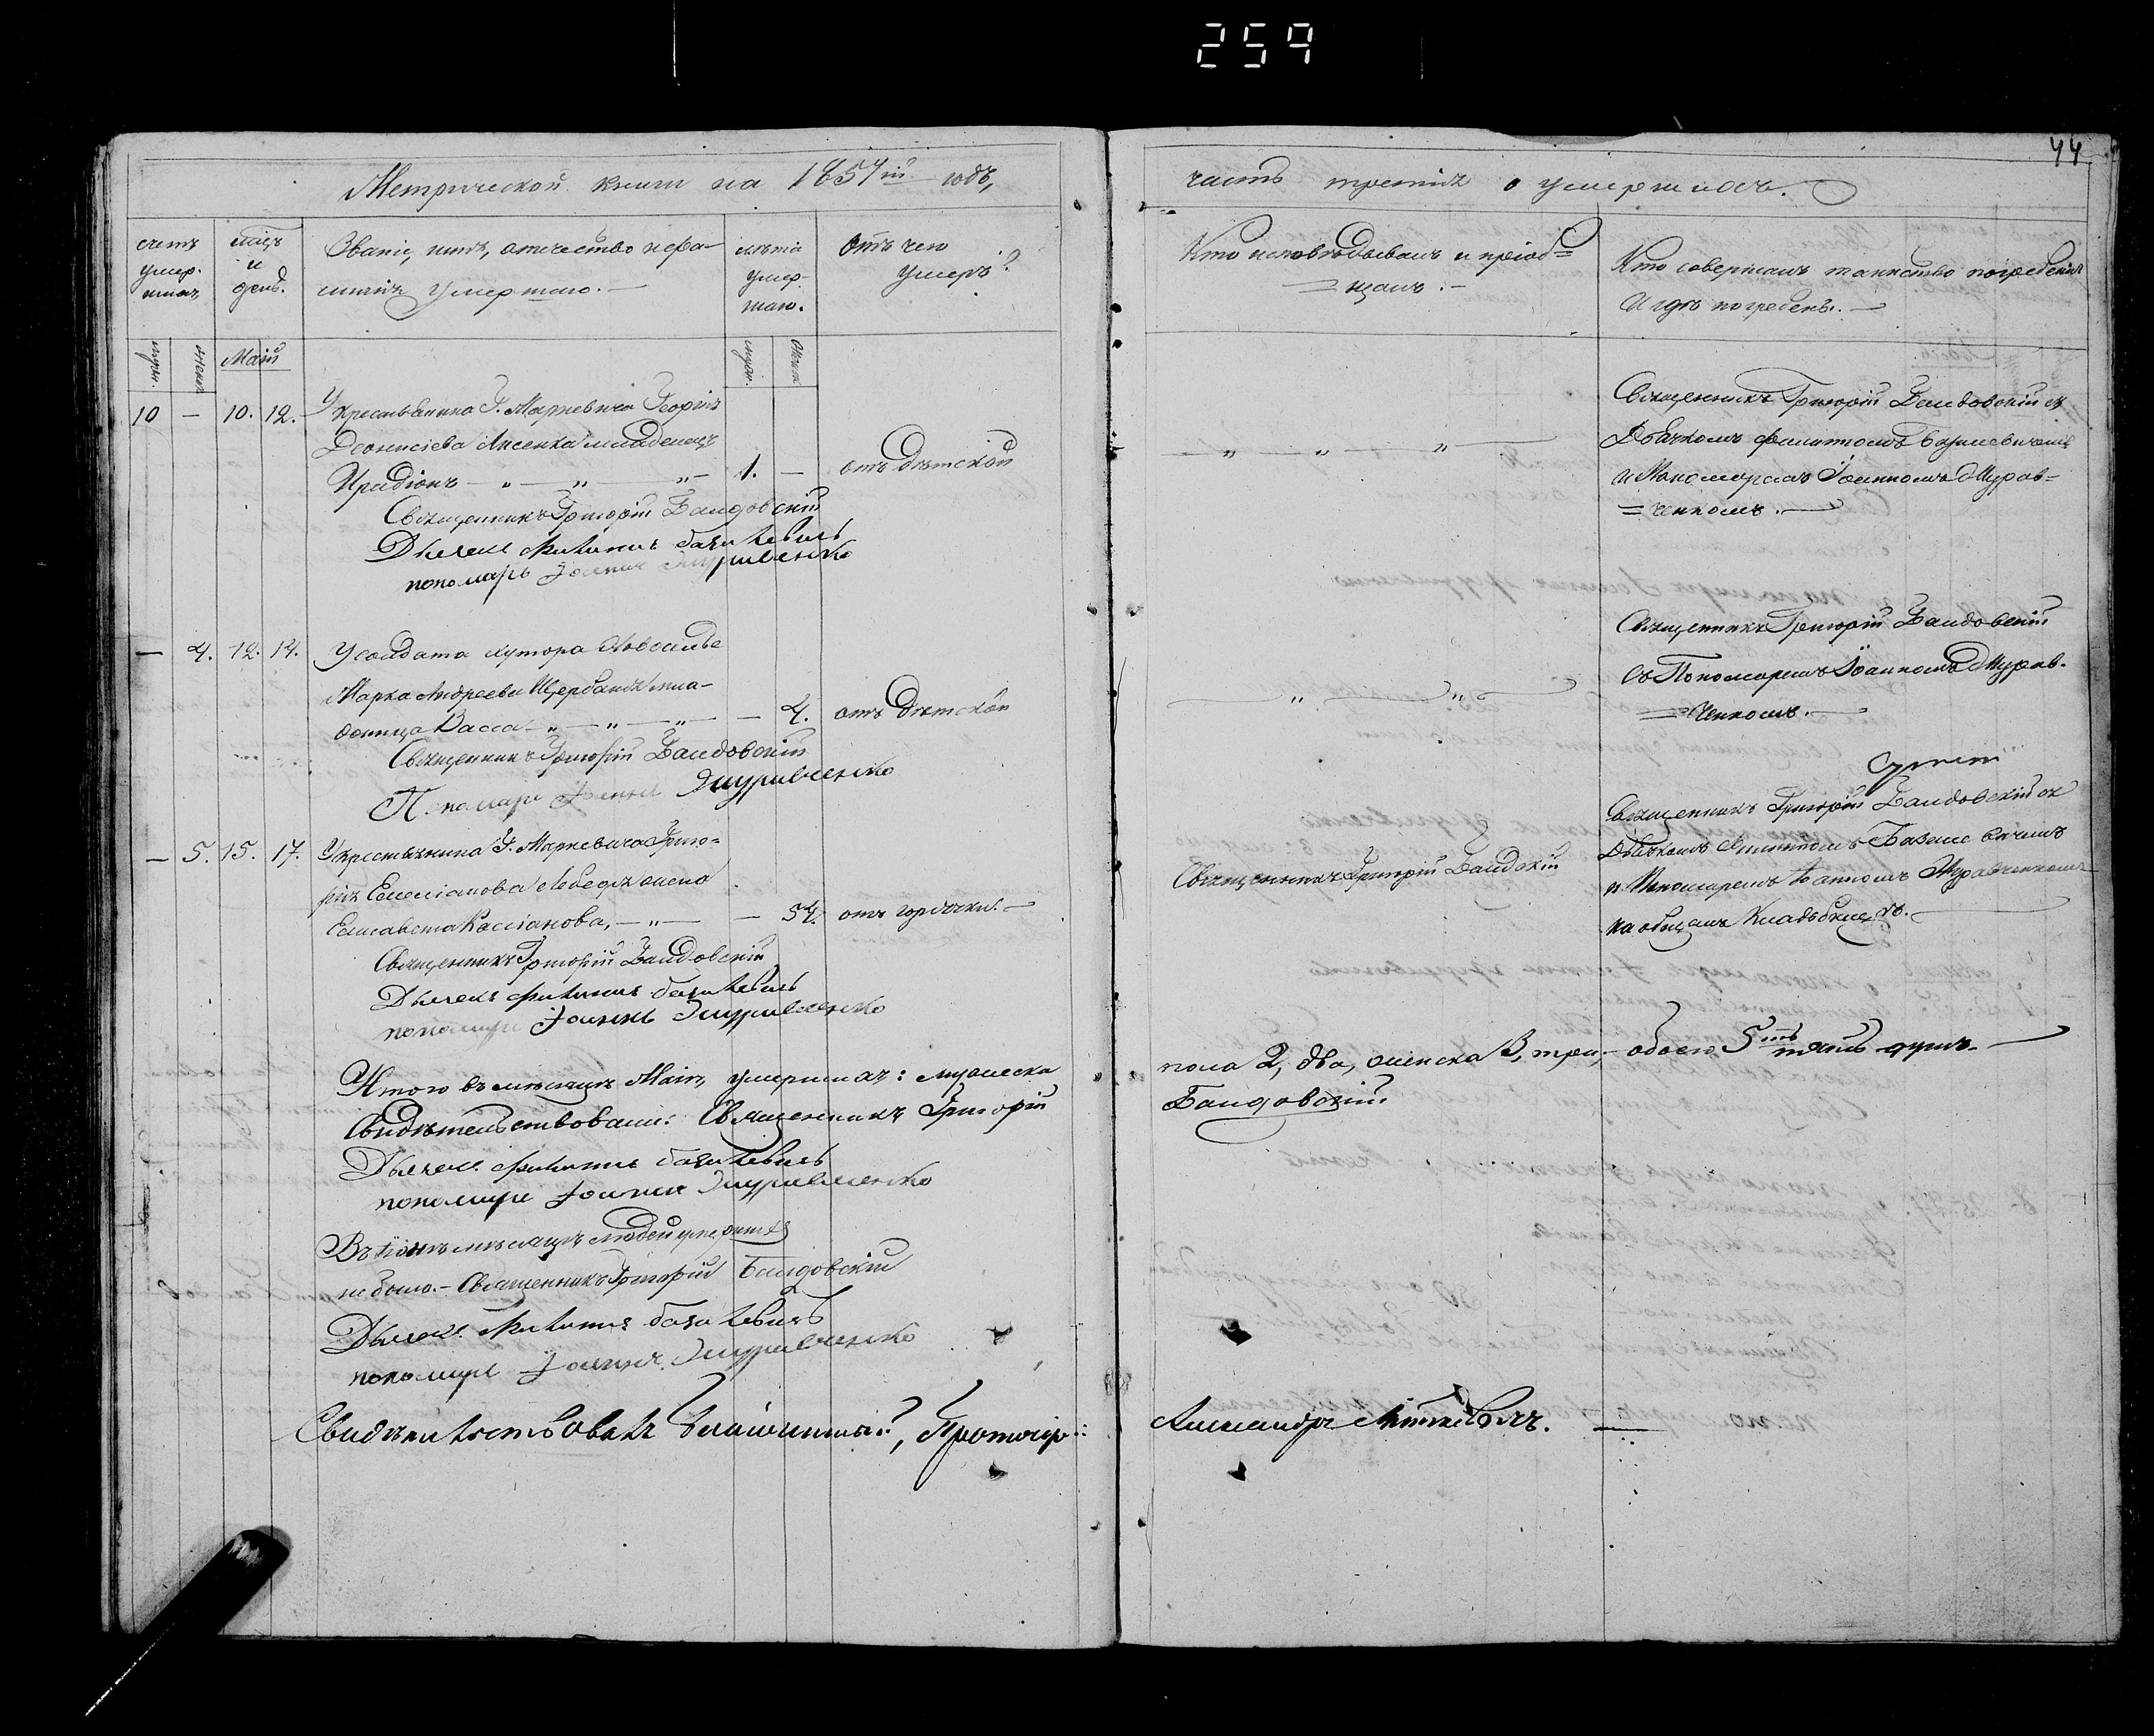 259
44
Метрической книги на 1857й годъ,
часть третія о умершихъ.
счетъ умер-шихъ
мѣсяцъ и день.
Званіе, имя, отечество и фа-
милія умершаго.
лѣта умер-шаго.
Отъ чего умеръ?
Кто исповѣдывалъ и пріоб=
=щалъ.
Кто совершалъ таинство погребенія
и гдѣ погребенъ.
муж. женск. Маій муж. женск.
10 — 10. 12. У крестьянина Г. Маркевича Георгія
Деонисіева Аксенка младенецъ
Иродіонъ 1. — отъ дѣтской
Священникъ Григорій Бандовскій
Дьячекъ Филипъ Базилевичъ
пономарь Іоаннъ Журавленко
Священникъ Григорій Бандовскій съ
Дьячкомъ Филиппомъ Базилевичемъ
и Пономаремъ Іоанномъ Журав=
=ченкомъ.
— 4. 12. 14. У солдата хутора
Марка Андреева Щербаня мла-
деница Васса — 4. отъ дѣтской
Священникъ Григорій Бандовскій
Пономарь Іоаннъ Журавленко
Священникъ Григорій Бандовскій
съ Пономаремъ Іоанномъ Журав-
=ченкомъ.
— 5. 15. 17. У крестьянина Г. Маркевича Григо=
рія Емеліанова Лебедя жена
Елисавета Кассіанова, — 54. отъ горячки.
Священникъ Григорій Бандовскій
Дьячекъ Филипъ Базилевичъ
пономарь Іоаннъ Журавленко
Священникъ Григорій Бандскій
Священникъ Григорій Бандовскій съ
Дьячкомъ Филиппомъ Базилевичемъ
и Пономаремъ Іоанномъ Журавченкомъ
на общемъ кладбищѣ.
Итого въ мѣсяцѣ Маіи, умершихъ: мужеска
пола 2, два, женска 3, три, обоего 5ть пять душъ.
Свидѣтельствовали: Священникъ Григорій
Бандовскій.
Дьячекъ Филипъ Базилевичъ
пономарь Іоаннъ Журавленко
Въ Іюнѣ мѣсяцѣ людей умершихъ
не было. — Священникъ Григорій Бандовскій
Дьячекъ Филипъ Базилевичъ
пономарь Іоаннъ Журавленко
Свидѣтельствовалъ Благочинный, Протоіер:
Александръ